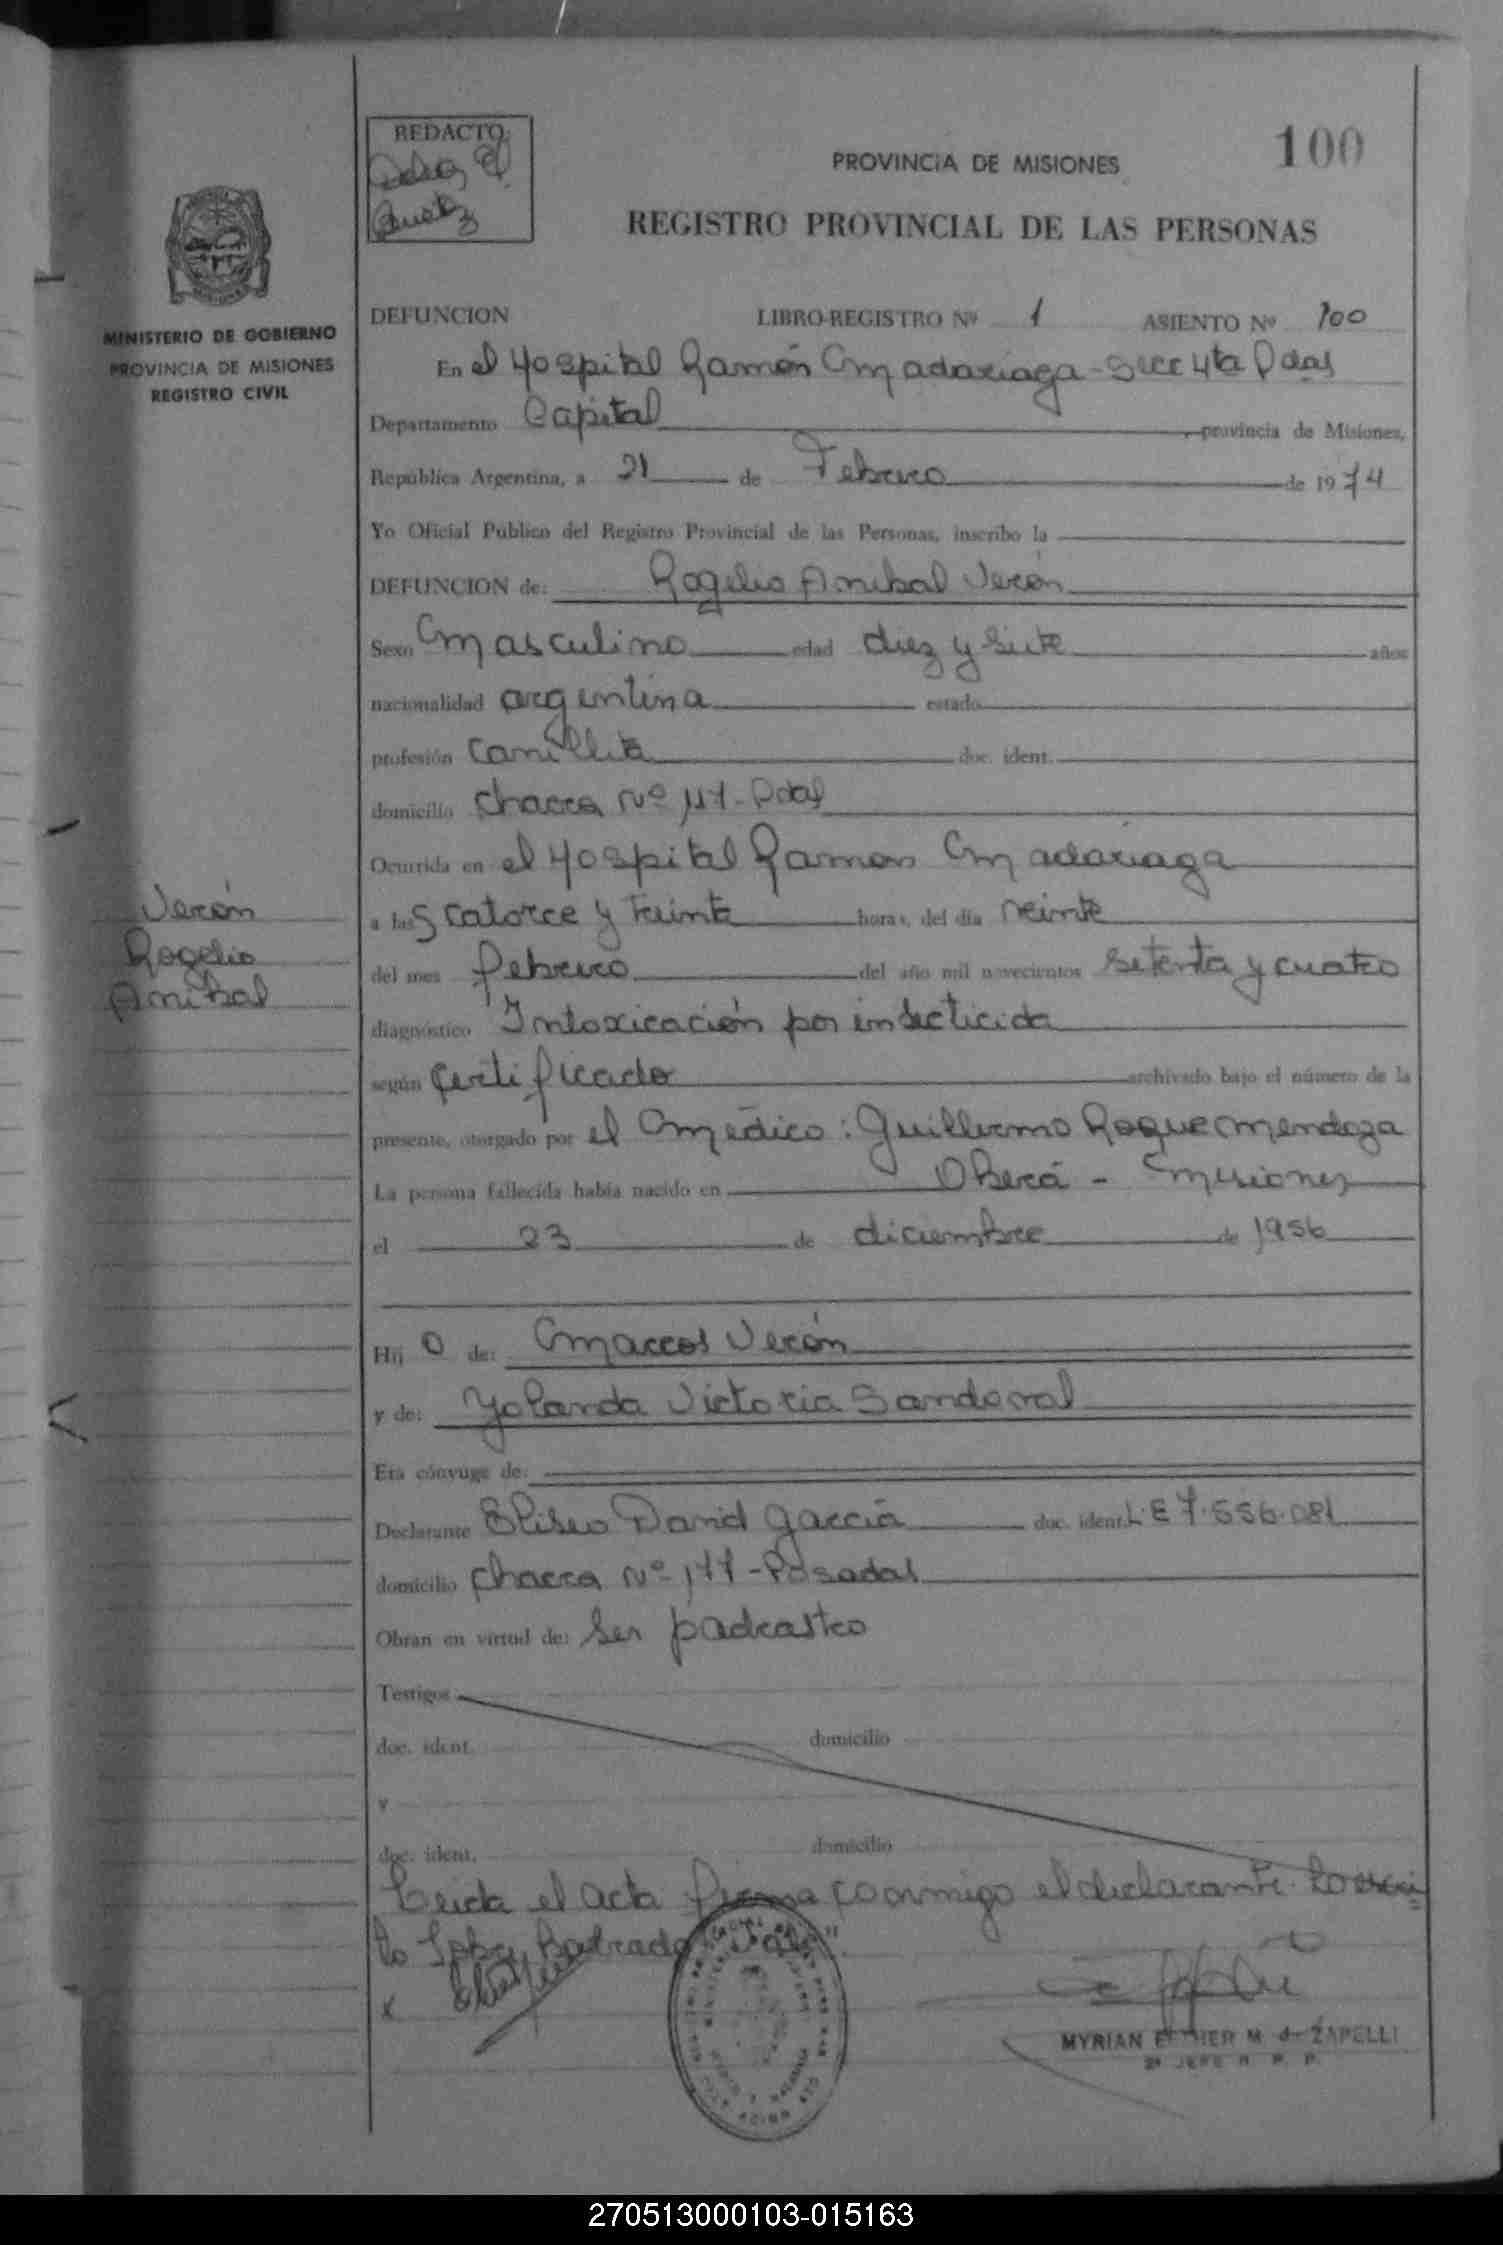 REDACTO
100
PROVINCIA DE MISIONES
REGISTRO PROVINCIAL DE LAS PERSONAS
MINISTERIO DE GOBIERNO
PROVINCIA DE MISIONES
REGISTRO CIVIL
DEFUNCION LIBRO-REGISTRO Nº 1 ASIENTO Nº 100
En el Hospital Ramón Madariaga - Secc 4ta Pdas
Departamento Capital, provincia de Misiones,
República Argentina, a 21 de Febrero de 1974
Yo Oficial Público del Registro Provincial de las Personas, inscribo la
DEFUNCION de: Rogelio Anibal Verón
Sexo masculino edad diez y siete años
nacionalidad argentina estado
profesión Canillita doc. ident.
domicilio chacra Nº Pdas
Ocurrida en el Hospital Ramon Madariaga
a las catorce y treinta horas, del día veinte
del mes febrero del año mil novecientos setenta y cuatro
diagnóstico Intoxicación por insecticida
según certificado archivado bajo el número de la
presente, otorgado por el médico: Guillermo Roque Mendoza
La persona fallecida había nacido en Oberá - Misiones
el 23 de diciembre de 1956
Verón
Rogelio
Anibal
Hij o de: Marcos Verón
y de: Yolanda Victoria Sandoval
Era cónyuge de:
Declarante Eliseo David García doc. ident. L.E 7.556.081
domicilio chacra Nº 177 - Posadas
Obran en virtud de: ser padrastro
Testigos
doc. ident. domicilio
y
doc. ident. domicilio
Leida el acta firma conmigo el declarante. Lo escri
to
x
MYRIAN ESTHER M. de ZAPELLI
2º JEFE R. P. P.
270513000103-015163